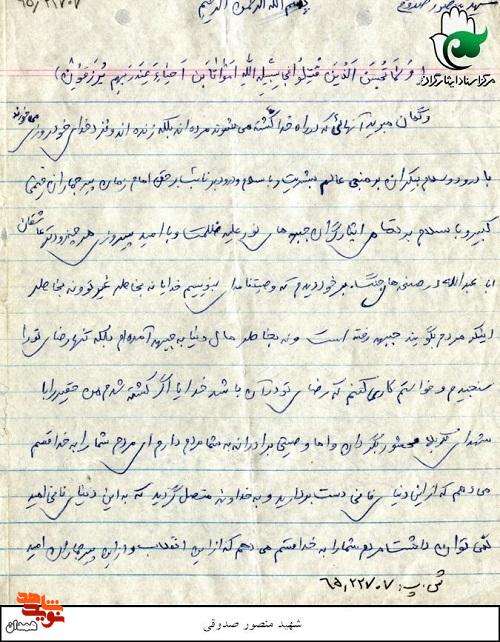 بسم الله الرحمن الرحیم
۶۵/۲۱۷۰۷
مرکز اسناد ایثارگران
( و لا تحسبن الذین قتلوا فی سبیل الله امواتا بل احیاء عند ربهم یرزقون )
و گمان مبرید آنهائی که در راه خدا کشته می شوند مرده اند بلکه زنده اند و نزد خدای خود روزی می خورند
با درود و سلام بیکران بر منجی عالم بشریت و با سلام و درود بر نائب بر حق امام زمان پیر جماران خمینی
کبیر و با سلام بر تمامی ایثارگران جبهه های نور علیه ظلمت و با امید پیروزی هر چه زودتر عاشقان
ابا عبدالله در صفنه های جنگ بر خود دیدم که وصیتنامه ای بنویسم خدایا نه بخاطر غیر تو و نه بخاطر
اینکه مردم بگویند جبهه رفته است و نه بخاطر مال دنیا به جبهه آمده ام بلکه تنها رضای تو را
سنجیدم و خواستم کاری کنم که رضای تو در آن باشد خدایا اگر کشته شدم من حقیر را با
شهدای کربلا محشور بگردان و اما وصیتی برادرانه به شما مردم دارم ای مردم شما را به خدا قسم
می دهم که از این دنیای فانی دست بردارید و به خداوند متصل گردید که به این دنیای فانی امید
نمی توان داشت مردم شما را به خدا قسم می دهم که از این انقلاب و از این پیر جماران امید
ش. پ: ۶۵,۲۲۷۰۷
نوید شاهد
همدان
شهید منصور صدوقی